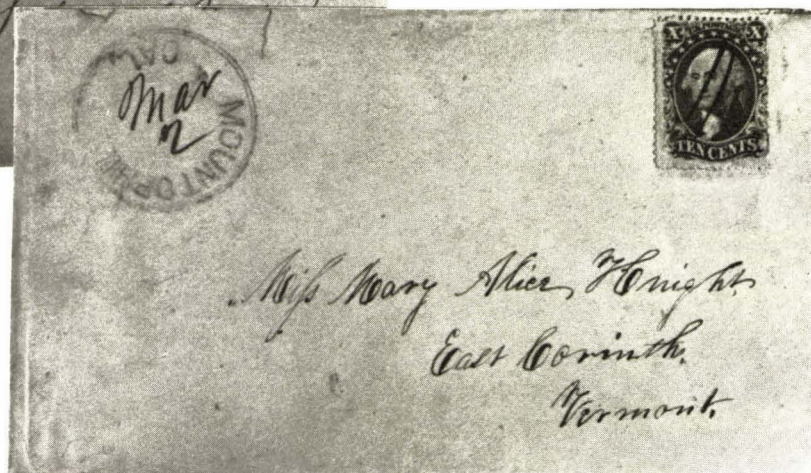 MOUNT OPHIR
CAL
Mar
2
X U.S. POSTAGE X
TEN CENTS
Miss Mary Alice Knight
East Corinth,
Vermont.